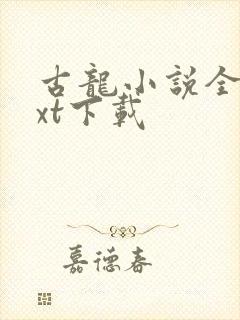 古龍小説全
xt下載
嘉德春